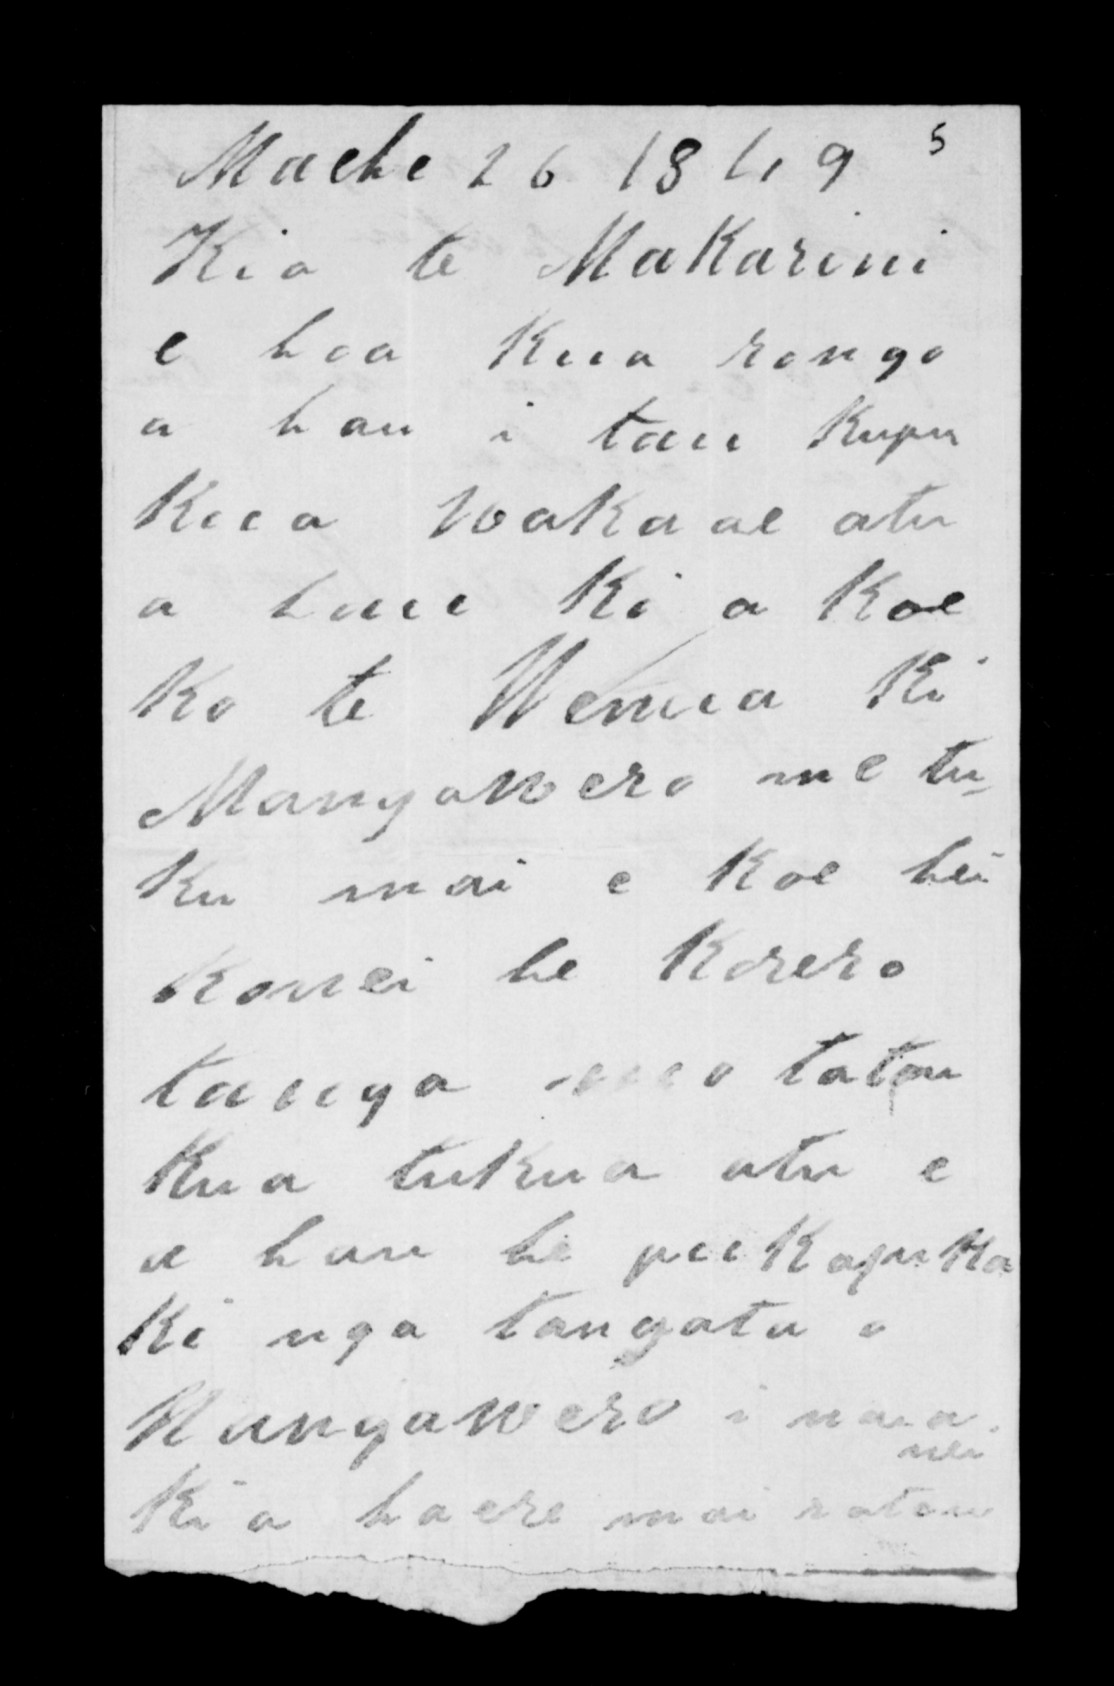 Maehe 26 1849 5
Kia te Makarini
e hoa Kua rongo
a hau i tau Kupu
Kua wakaae atu
a hau Ki a Koe
Ko te Wenua Ki
Mangawero me tu-
Ku mai e Koe hei
Konei he Korero
tanga mo tatou
Kua tukua atu e
a hau he pukapuka
Ki nga tangata o
Mangawero i naia
nei
Kia haere mai ratou